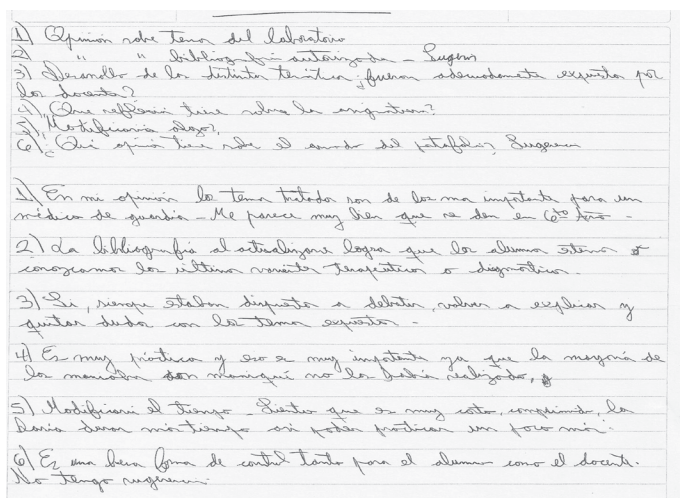 1) Opinión sobre temas del laboratorio
2) " " bibliografía autorizada - Sugerir
3) Desarrollo de las distintas temáticas ¿fueron adecuadamente expuestos por
los docentes?
4) ¿Que reflexión tiene sobre la asignatura?
5) ¿Modificaria algo?
6) ¿Qué opinión tiene sobre el armado del portafolio? Sugerencias
1) En mi opinión los temas tratados son de los mas importantes para un
médico de guardia - Me parece muy bien que se den en 6to Año -
2) La bibliografía al actualizarse logra que los alumnos
conozcamos los últimos terapeuticos o diagnosticos.
3) Si, siempre estaban dispuestos a debatir, volver a explicar y
quitar dudas con los temas expuestos -
4) Es muy práctica y eso es muy importante ya que la mayoría de
las maniobras con maniquí no las había realizado,
5) Modificaria el tiempo - Siento que es muy corto, comprimido, la
haria durar más tiempo asi poder practicar un poco más.
6) Es una buena forma de control tanto para el alumno como el docente.
No tengo sugerencias